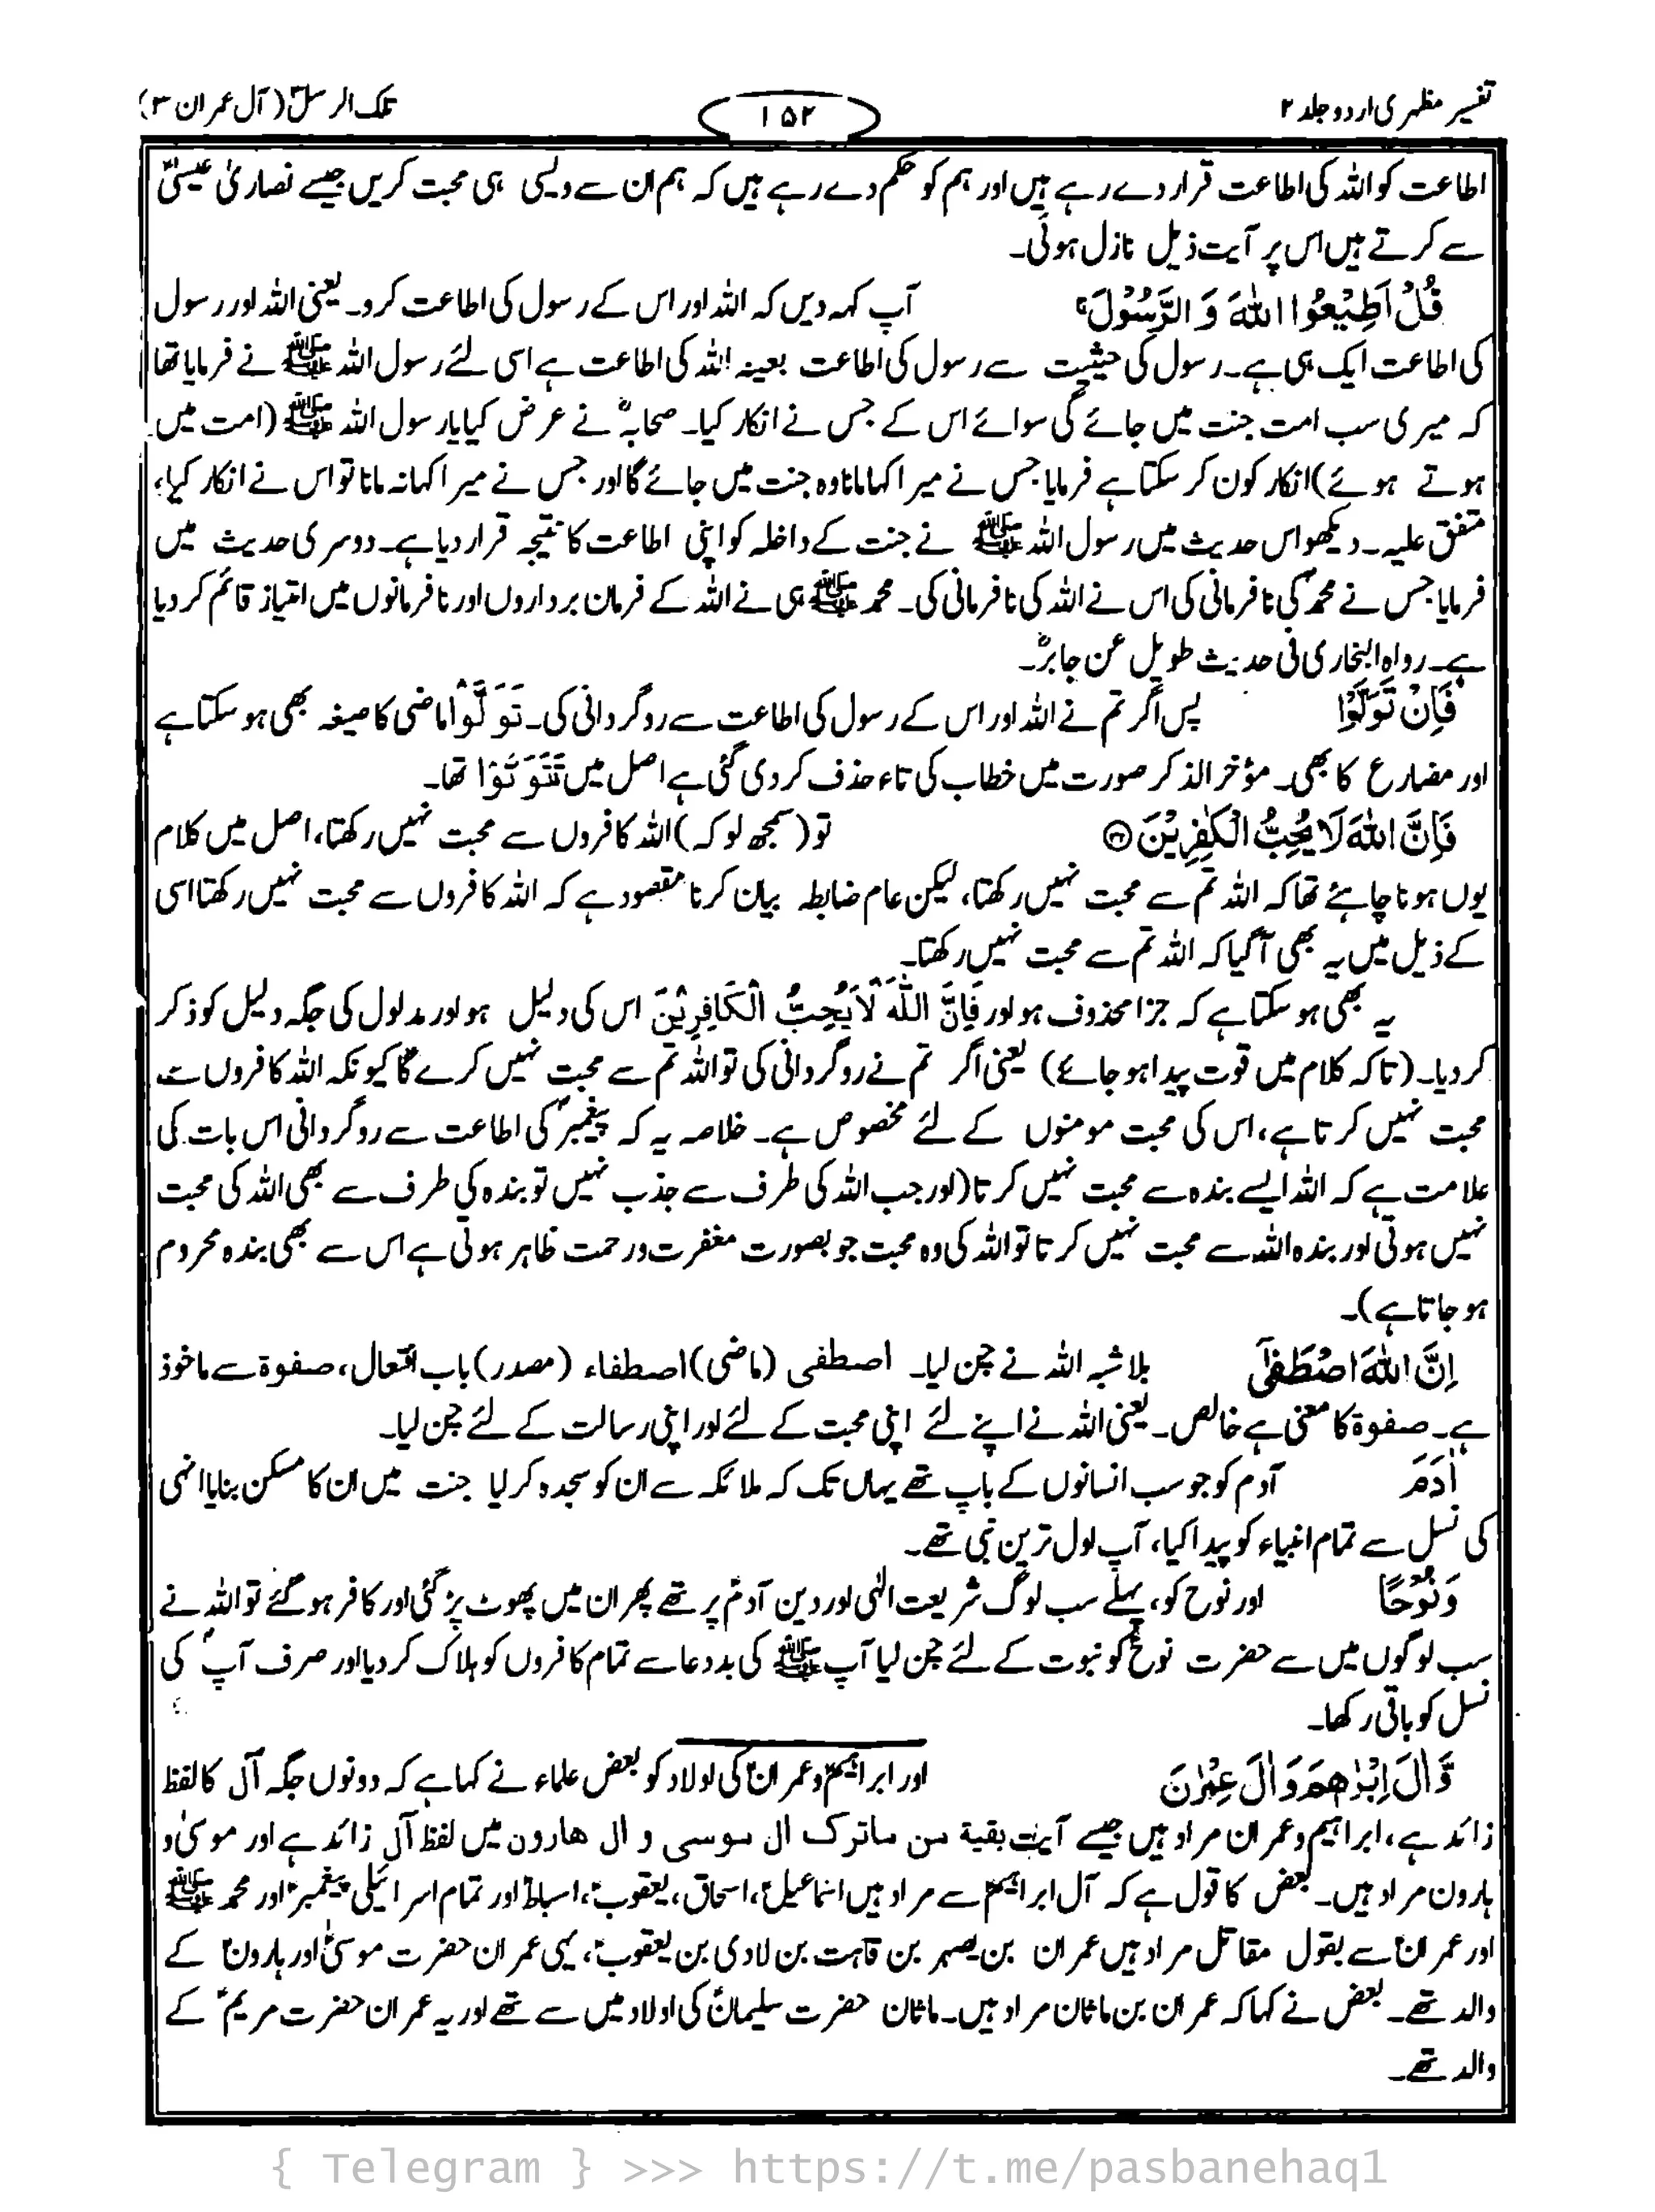 تفسیر مظہری اردو جلد ۲
۱۵۲
تلک الرسل (آل عمران ۳)
اطاعت کو اللہ کی اطاعت قرار دے رہے ہیں اور ہم کو حکم دے رہے ہیں کہ ہم ان سے ویسی ہی محبت کریں جیسے نصاریٰ عیسیٰؑ
سے کرتے ہیں اس پر آیت ذیل نازل ہوئی۔
قُلْ اَطِیْعُوا اللّٰهَ وَ الرَّسُوْلَ ۚ آپ کہہ دیں کہ اللہ اور اس کے رسول کی اطاعت کرو۔ یعنی اللہ اور رسول
کی اطاعت ایک ہی ہے۔ رسول کی حیثیت سے رسول کی اطاعت بعینہ اللہ کی اطاعت ہے اسی لئے رسول اللہ ﷺ نے فرمایا تھا
کہ میری سب امت جنت میں جائے گی سوائے اس کے جس نے انکار کیا۔ صحابہؓ نے عرض کیا یا رسول اللہ ﷺ (امت میں
ہوتے ہوئے) انکار کون کر سکتا ہے فرمایا جس نے میرا کہا مانا وہ جنت میں جائے گا اور جس نے میرا کہا نہ مانا تو اس نے انکار کیا،
متفق علیہ۔ دیکھو اس حدیث میں رسول اللہ ﷺ نے جنت کے داخلہ کو اپنی اطاعت کا نتیجہ قرار دیا ہے۔ دوسری حدیث میں
فرمایا جس نے محمدؐ کی نافرمانی کی اس نے اللہ کی نافرمانی کی۔ محمد ﷺ ہی نے اللہ کے فرمان برداروں اور نافرمانوں میں امتیاز قائم کر دیا
ہے۔ رواہ البخاری فی حدیث طویل عن جابرؓ۔
فَاِنْ تَوَلَّوْا پس اگر تم نے اللہ اور اس کے رسول کی اطاعت سے روگردانی کی۔ تَوَلَّوْا ماضی کا صیغہ بھی ہو سکتا ہے
اور مضارع کا بھی۔ مؤخر الذکر صورت میں خطاب کی تاء حذف کر دی گئی ہے اصل میں تَتَوَلَّوْا تھا۔
فَاِنَّ اللّٰهَ لَا یُحِبُّ الْكٰفِرِیْنَ ۝۳۲ تو (سمجھ لو کہ) اللہ کافروں سے محبت نہیں رکھتا، اصل میں کلام
یوں ہونا چاہئے تھا کہ اللہ تم سے محبت نہیں رکھتا، لیکن عام ضابطہ بیان کرنا مقصود ہے کہ اللہ کافروں سے محبت نہیں رکھتا اسی
کے ذیل میں یہ بھی آگیا کہ اللہ تم سے محبت نہیں رکھتا۔
یہ بھی ہو سکتا ہے کہ جزا محذوف ہو اور فَاِنَّ اللّٰهَ لَا یُحِبُّ الْكَافِرِیْنَ اس کی دلیل ہو اور مدلول کی جگہ دلیل کو ذکر
کر دیا۔ (تاکہ کلام میں قوت پیدا ہو جائے) یعنی اگر تم نے روگردانی کی تو اللہ تم سے محبت نہیں کرے گا کیونکہ اللہ کافروں سے
محبت نہیں کرتا ہے، اس کی محبت مومنوں کے لئے مخصوص ہے۔ خلاصہ یہ کہ پیغمبرؐ کی اطاعت سے روگردانی اس بات کی
علامت ہے کہ اللہ ایسے بندہ سے محبت نہیں کرتا (اور جب اللہ کی طرف سے جذب نہیں تو بندہ کی طرف سے بھی اللہ کی محبت
نہیں ہوتی اور بندہ اللہ سے محبت نہیں کرتا تو اللہ کی وہ محبت جو بصورت مغفرت و رحمت ظاہر ہوتی ہے اس سے بھی بندہ محروم
ہو جاتا ہے)۔
اِنَّ اللّٰهَ اصْطَفٰۤی بلاشبہ اللہ نے چن لیا۔ اصطفی (ماضی) اصطفاء (مصدر) باب افتعال، صفوۃ سے ماخوذ
ہے۔ صفوۃ کا معنی ہے خالص۔ یعنی اللہ نے اپنے لئے اپنی محبت کے لئے اور اپنی رسالت کے لئے چن لیا۔
اٰدَمَ آدم کو جو سب انسانوں کے باپ تھے یہاں تک کہ ملائکہ سے ان کو سجدہ کرلیا جنت میں ان کا مسکن بنایا انہی
کی نسل سے تمام انبیاء کو پیدا کیا، آپ اول ترین نبی تھے۔
وَ نُوْحًا اور نوح کو، پہلے سب لوگ شریعت الٰہی اور دین آدمؑ پر تھے پھر ان میں پھوٹ پڑ گئی اور کافر ہو گئے تو اللہ نے
سب لوگوں میں سے حضرت نوحؑ کو نبوت کے لئے چن لیا آپ ﷺ کی بددعا سے تمام کافروں کو ہلاک کر دیا اور صرف آپؑ کی
نسل کو باقی رکھا۔
وَّ اٰلَ اِبْرٰهِیْمَ وَ اٰلَ عِمْرٰنَ اور ابراہیمؑ و عمرانؑ کی اولاد کو بعض علماء نے کہا ہے کہ دونوں جگہ آل کا لفظ
زائد ہے، ابراہیم و عمران مراد ہیں جیسے آیت بقیة من ماترک ال موسی و ال هارون میں لفظ آل زائد ہے اور موسیٰ و
ہارون مراد ہیں۔ بعض کا قول ہے کہ آل ابراہیمؑ سے مراد ہیں اسماعیلؑ، اسحاق، یعقوبؑ، اسباطؑ اور تمام اسرائیلی پیغمبرؑ اور محمد ﷺ
اور عمرانؑ سے بقول مقاتل مراد ہیں عمران بن یصہر بن قاہت بن لاوی بن یعقوبؑ، یہی عمران حضرت موسیٰؑ اور ہارونؑ کے
والد تھے۔ بعض نے کہا کہ عمران بن ماثان مراد ہیں۔ ماثان حضرت سلیمانؑ کی اولاد میں سے تھے اور یہ عمران حضرت مریمؑ کے
والد تھے۔
{ Telegram } >>> https://t.me/pasbanehaq1